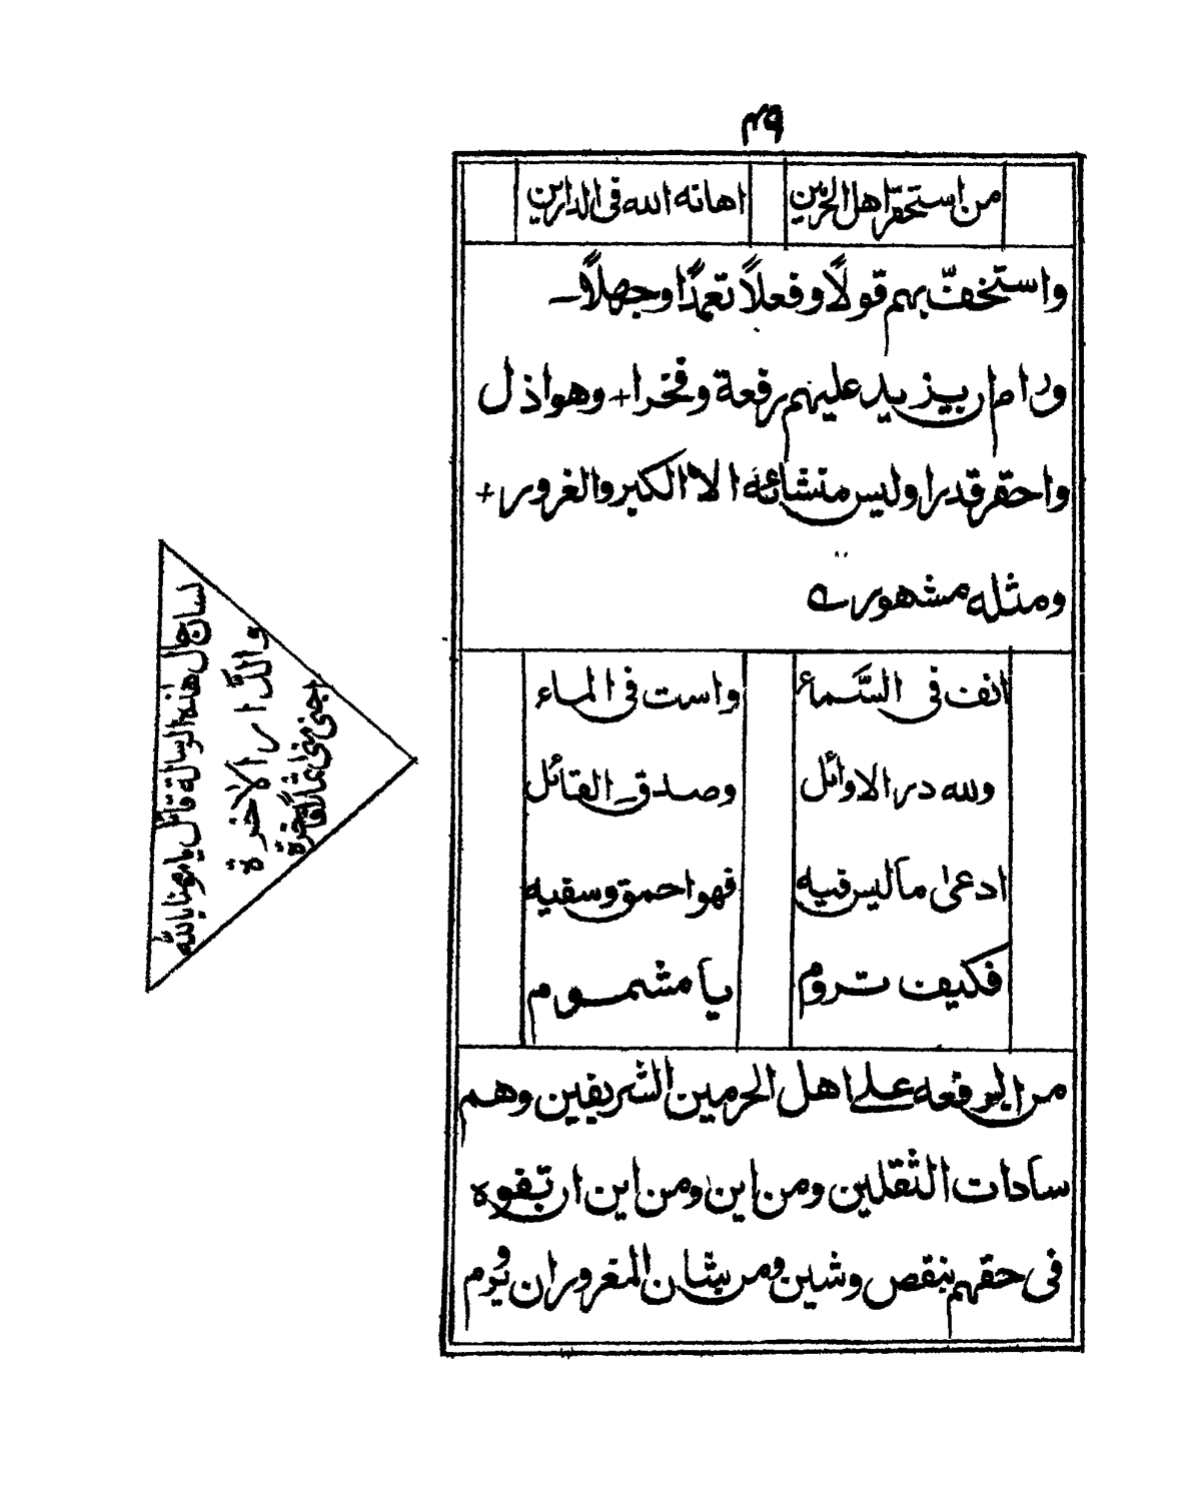 ٤٩
من استحقر اهل الحرمين اهانه الله فى الدارين
واستخفّ بهم قولاً وفعلاً تعمدًا وجهلاً
ورام ان يزيد عليهم رفعة وفخرا + وهو اذل
واحقر قدرا وليس منشائه الا الكبر والغرور +
ومثله مشهور
انف فى السَّماء واست فى الماء
ولله در الاوائل وصدق القائل
ادعى ما ليس فيه فهو احمق وسفيه
فكيف تروم يا مشموم
من الرفعه على اهل الحرمين الشريفين وهم
سادات الثقلين ومن اين ومن اين ان تفوه
فى حقهم بنقص وشين ومن شان المغرور ان يروم
لسان حال هذه الرسالة قائل يا مومنا بالله
والدّار الاخرة
اجنى منى ثمارًا فاخرة